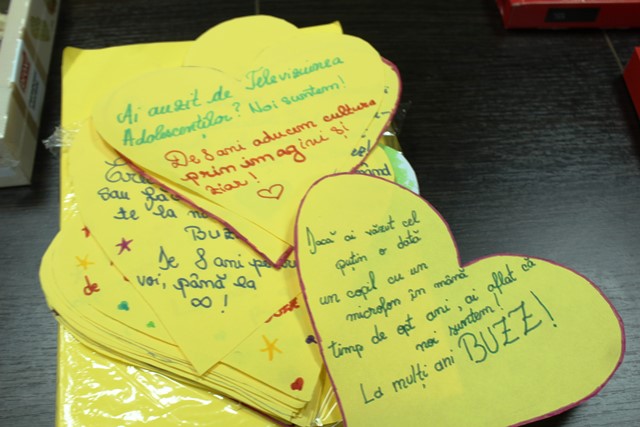 Ai auzit de Televiziunea
Adolescenților? Noi suntem!
De 8 ani aducem cultura
prin imagini și
ziar!
sau
te la
BUZ
De 8 ani
voi, până la
∞!
de
Dacă ai văzut cel
puțin o dată
un copil cu un
microfon în mână
timp de opt ani, ai aflat că
noi suntem!
La mulți ani BUZZ!